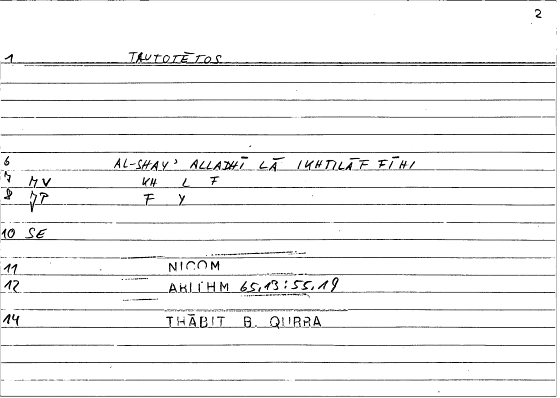 2
1 TAUTOTĒTOS
6 AL-SHAY' ALLADHĪ LĀ IKHTILĀF FĪHI
7 MV KH L F
8 F Y
10 SE
11 NICOM
12 ARITHM 65,13:55,19
14 THĀBIT B. QURRA